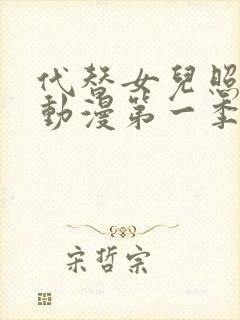 代替女兒照
動漫第一季
宋哲宗